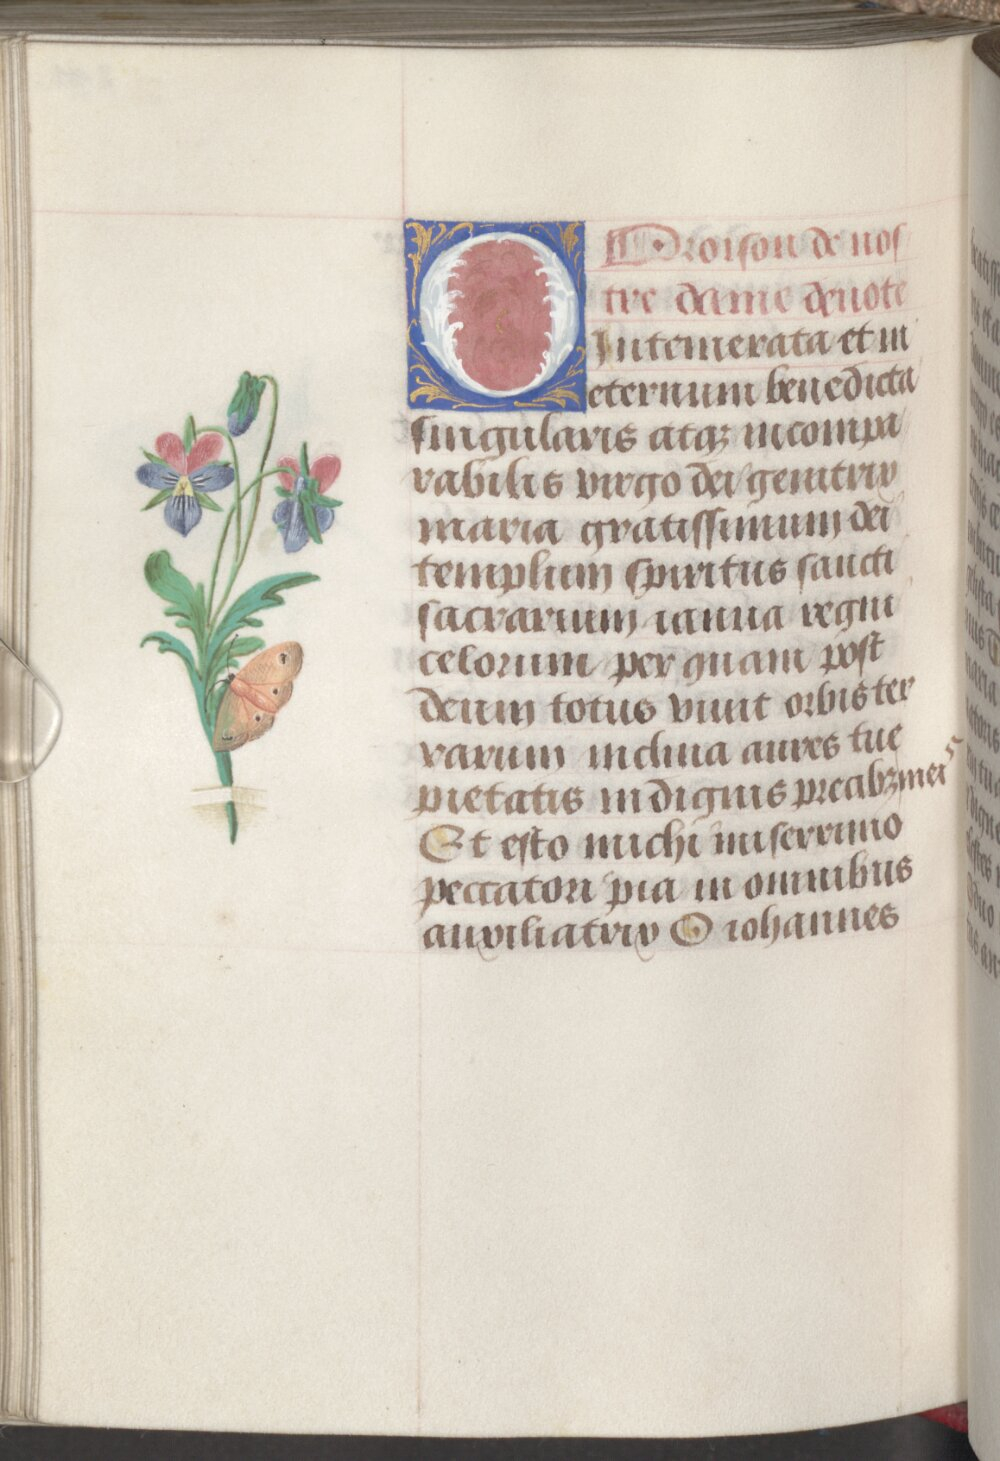 Oroison de nos
tre dame deuote
O Intemerata et in
eternum benedicta
singularis atqz incompa
rabilis virgo dei genitrix
maria gratissimum dei
templum spiritus sancti
sacrarium ianua regni
celorum per quam post
deum totus viuit orbis ter
rarum inclina aures tue
pietatis indignis precibz meis
Et esto michi miserrimo
peccatori pia in omnibus
auxiliatrix O iohannes